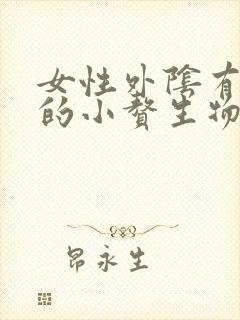 女性外陰有
的小贅生物
昂永生